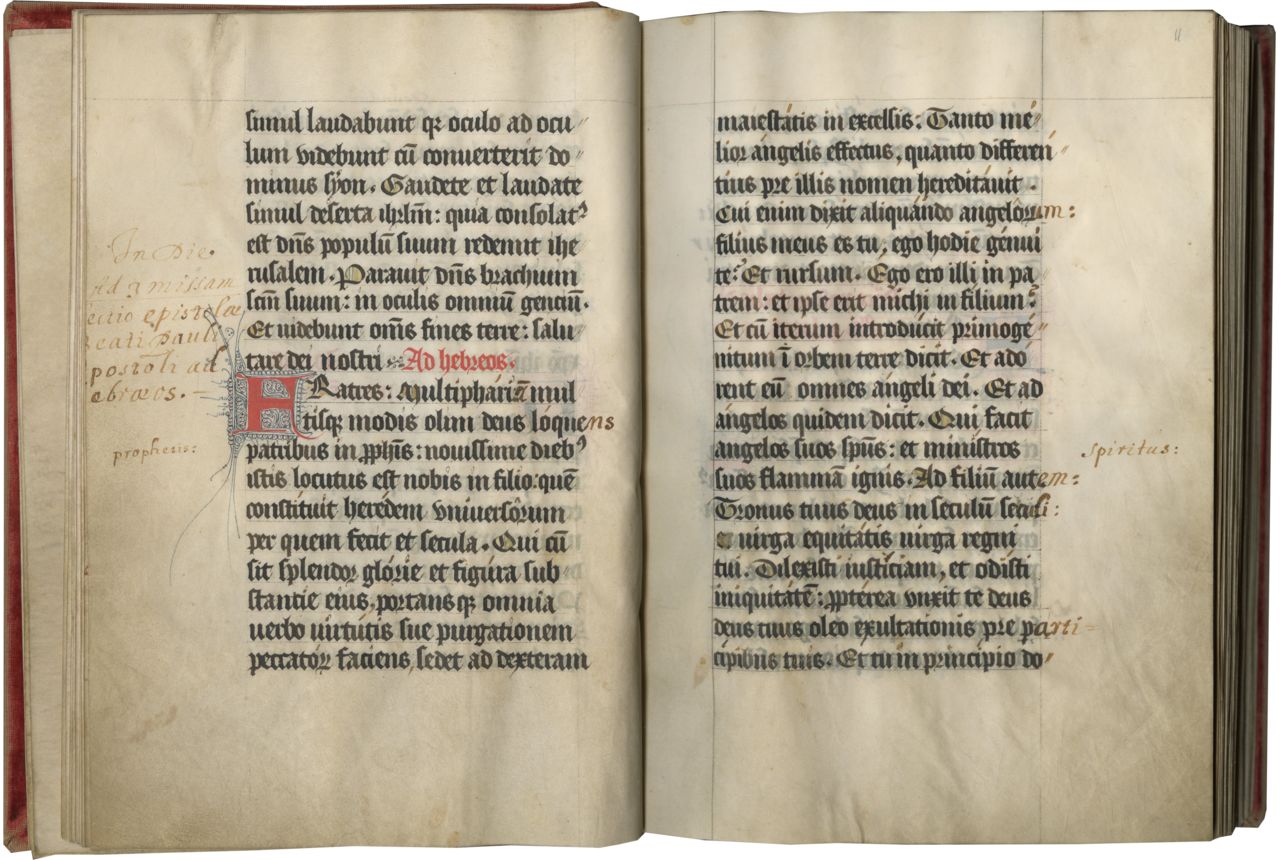 simul laudabunt qr oculo ad ocu〃
lum videbunt cū converterit do〃
minus syon. Gaudete et laudate
simul deserta ihrlm̄: quia consolatꝰ
est dn̄s populū suum redemit ihe
rusalem. Paravit dn̄s brachium
scm̄ suum: in oculis omniū gentiū.
Et videbunt om̄s fines terre: salu〃
tare dei nostri. Ad hebreos.
FRatres: Multiphariā mul
tisqꝫ modis olim deus lóquens
patribus in ꝓph̄is: novissime diebꝰ
istis locutus est nobis in filio: quē
constítuit herédem universôrum
per quem fecit et secula. Qui cū
sit splendor glórie et figúra sub〃
stantie eius, portans qꝫ omnia
verbo virtútis sue purgationem
peccatoꝝ faciens, sedet ad dexteram
In Die.
Ad 3 missam
lectio epistolæ
Beati Pauli
apostoli ad
ebræos. —
prophetis:
11
maiestátis in excelsis: Tanto mé〃
lior ángelis effectus, quanto differén〃
tius pre illis nomen hereditávit.
Cui enim dixit aliquándo angelôrum:
filius meus es tu, ego hodie génui
te? Et rursum. Ego ero illi in pa〃
trem: et ipse erit michi in filium?
Et cū iterum introdúcit primogé〃
nitum ī orbem terre dicit. Et adó〃
rent eū omnes angeli dei. Et ad
ángelos quidem dicit. Qui facit
angelos suos sp̄us: et ministros
suos flammā ignis. Ad filiū autem:
Tronus tuus deus in seculū seculi:
virga equitátis virga regni
tui. Dilexisti iusticiam, et odisti
iniquitátē: ꝓptérea unxit te deus
deus tuus oleo exultationis pre parti=
cipibus tuis. Et tu in principio do〃
spiritus: